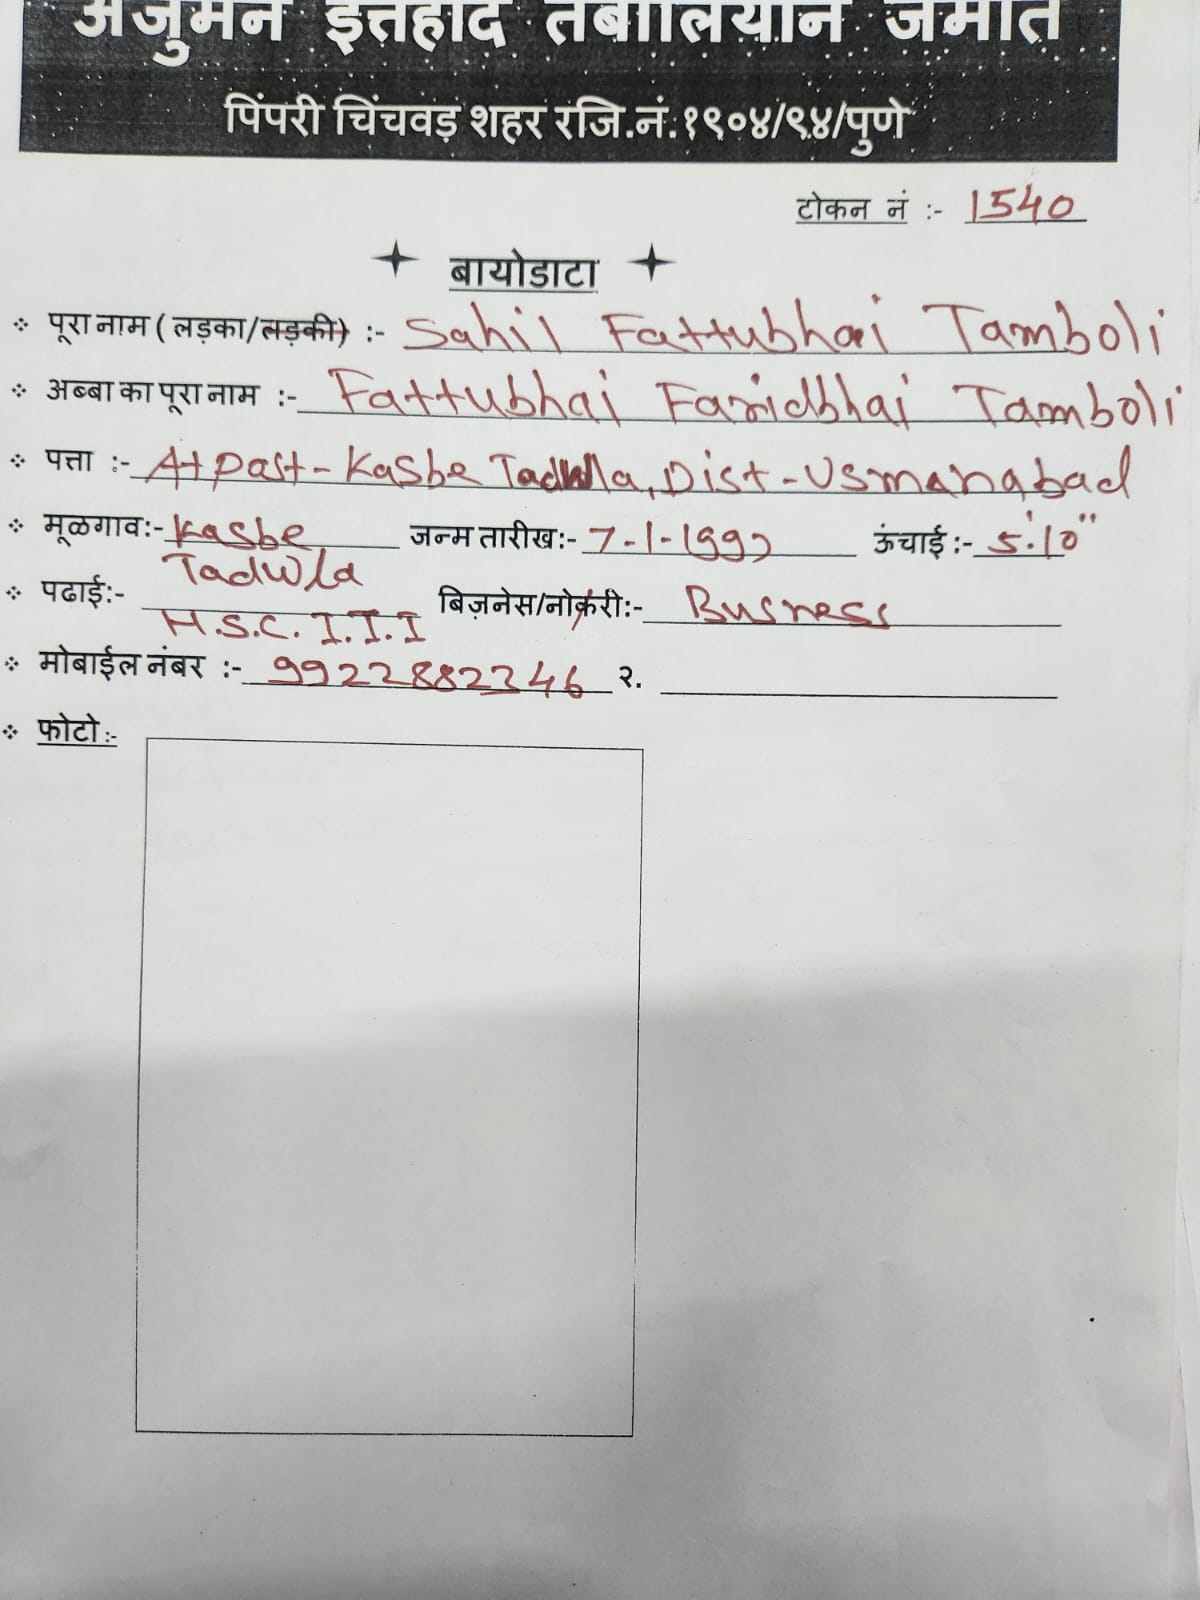 अंजुमन इत्तेहाद तंबोलियान जमात
पिंपरी चिंचवड शहर रजि.नं.१९०४/९४/पुणे
टोकन नं :- 1540
बायोडाटा
पूरा नाम ( लड़का/लड़की) :- Sahil Fattubhai Tamboli
अब्बा का पूरा नाम :- Fattubhai Faridbhai Tamboli
पत्ता :- At past - Kasbe Tadwla, Dist - Usmanabad
मूळगाव:- Kasbe Tadwla जन्म तारीख:- 7-1-1992 ऊंचाई :- 5'.10"
पढाई:- H.S.C. I.T.I बिज़नेस/नोकरी:- Busness
मोबाईल नंबर :- 9922882346 २.
फोटो :-